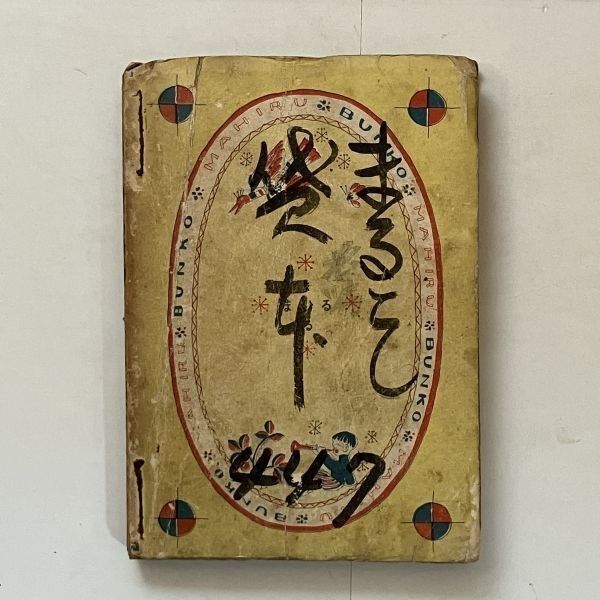 まるこし
貸本
447
MAHIRU BUNKO MAHIRU BUNKO MAHIRU BUNKO MAHIRU BUNKO